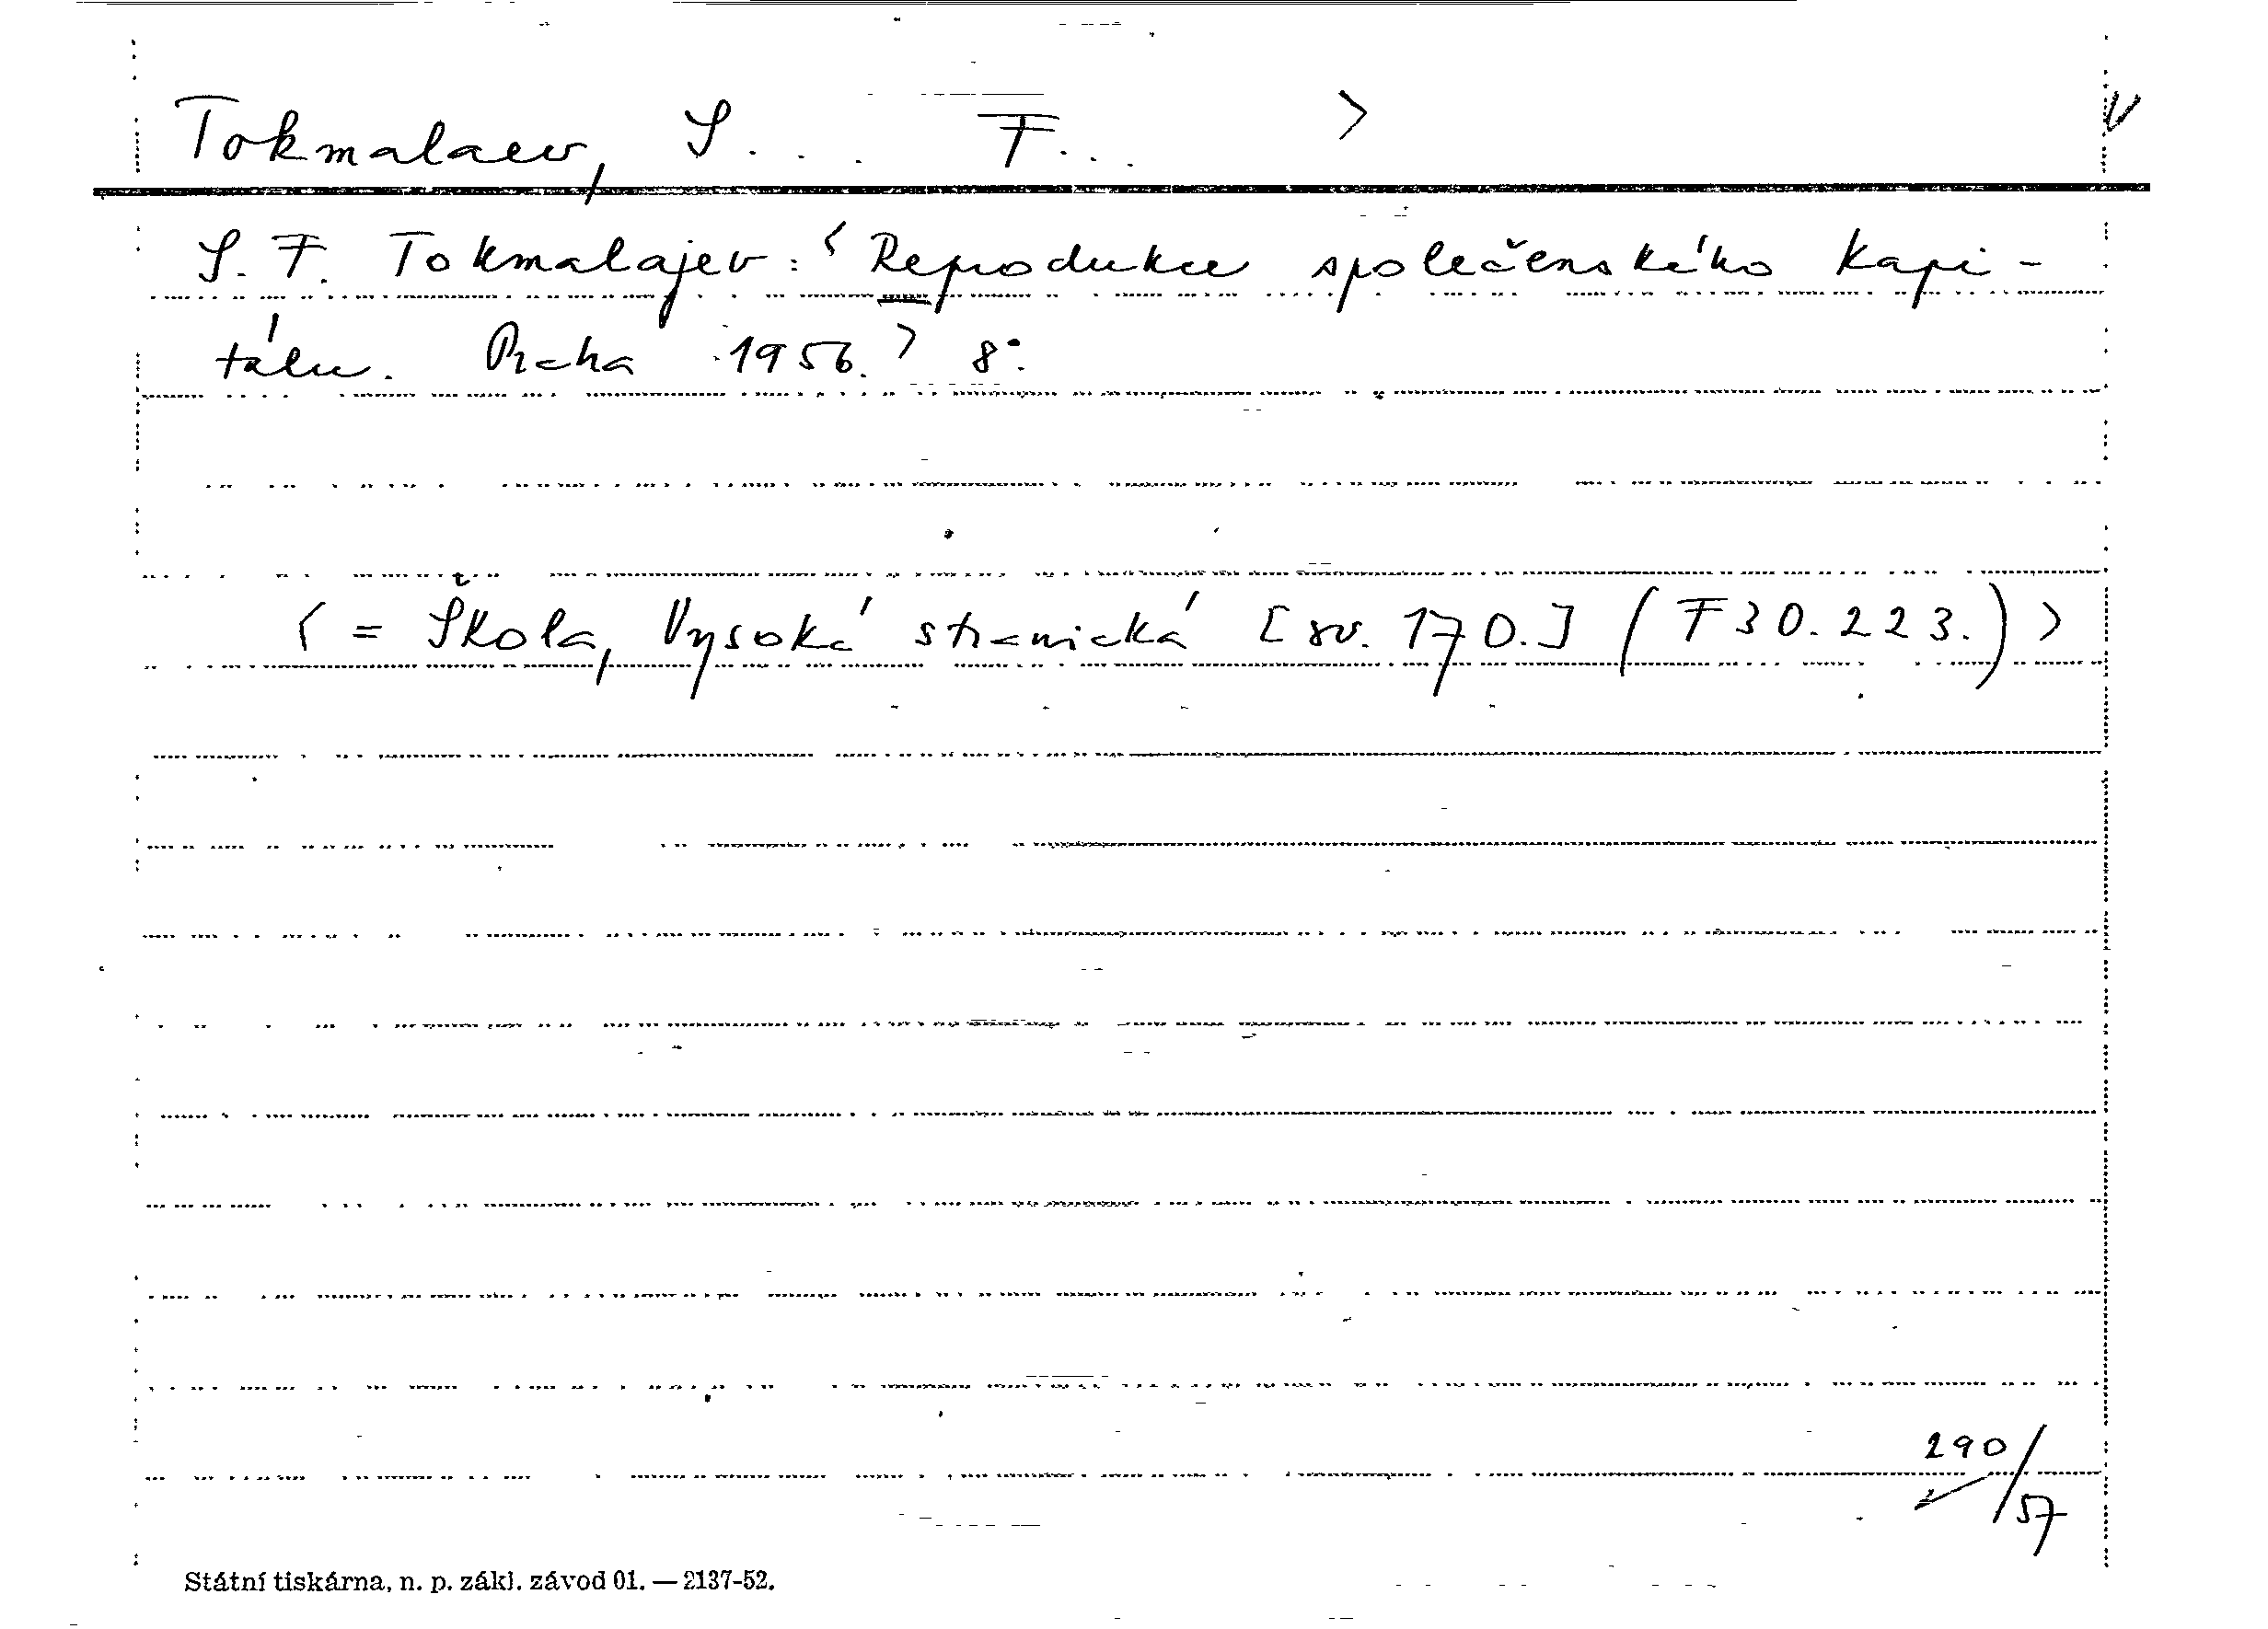 Tokmalaev, S... F... >
V
S. F. Tokmalajev: < Reprodukce společenského kapi-
tálu. Praha 1956. > 8°.
< = Škola, Vysoká stranická [sv. 170.] (F 30.223.) >
290/57
Státní tiskárna, n. p. zákl. závod 01. — 2137-52.